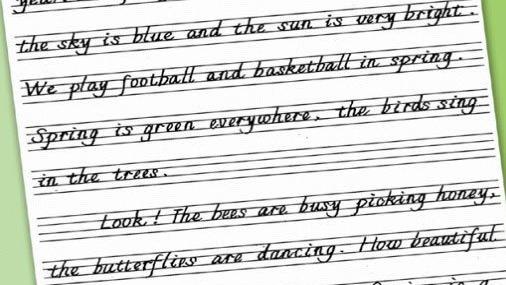 the sky is blue and the sun is very bright.
We play football and basketball in spring.
Spring is green everywhere, the birds sing
in the trees.
Look! The bees are busy picking honey,
the butterflies are dancing. How beautiful